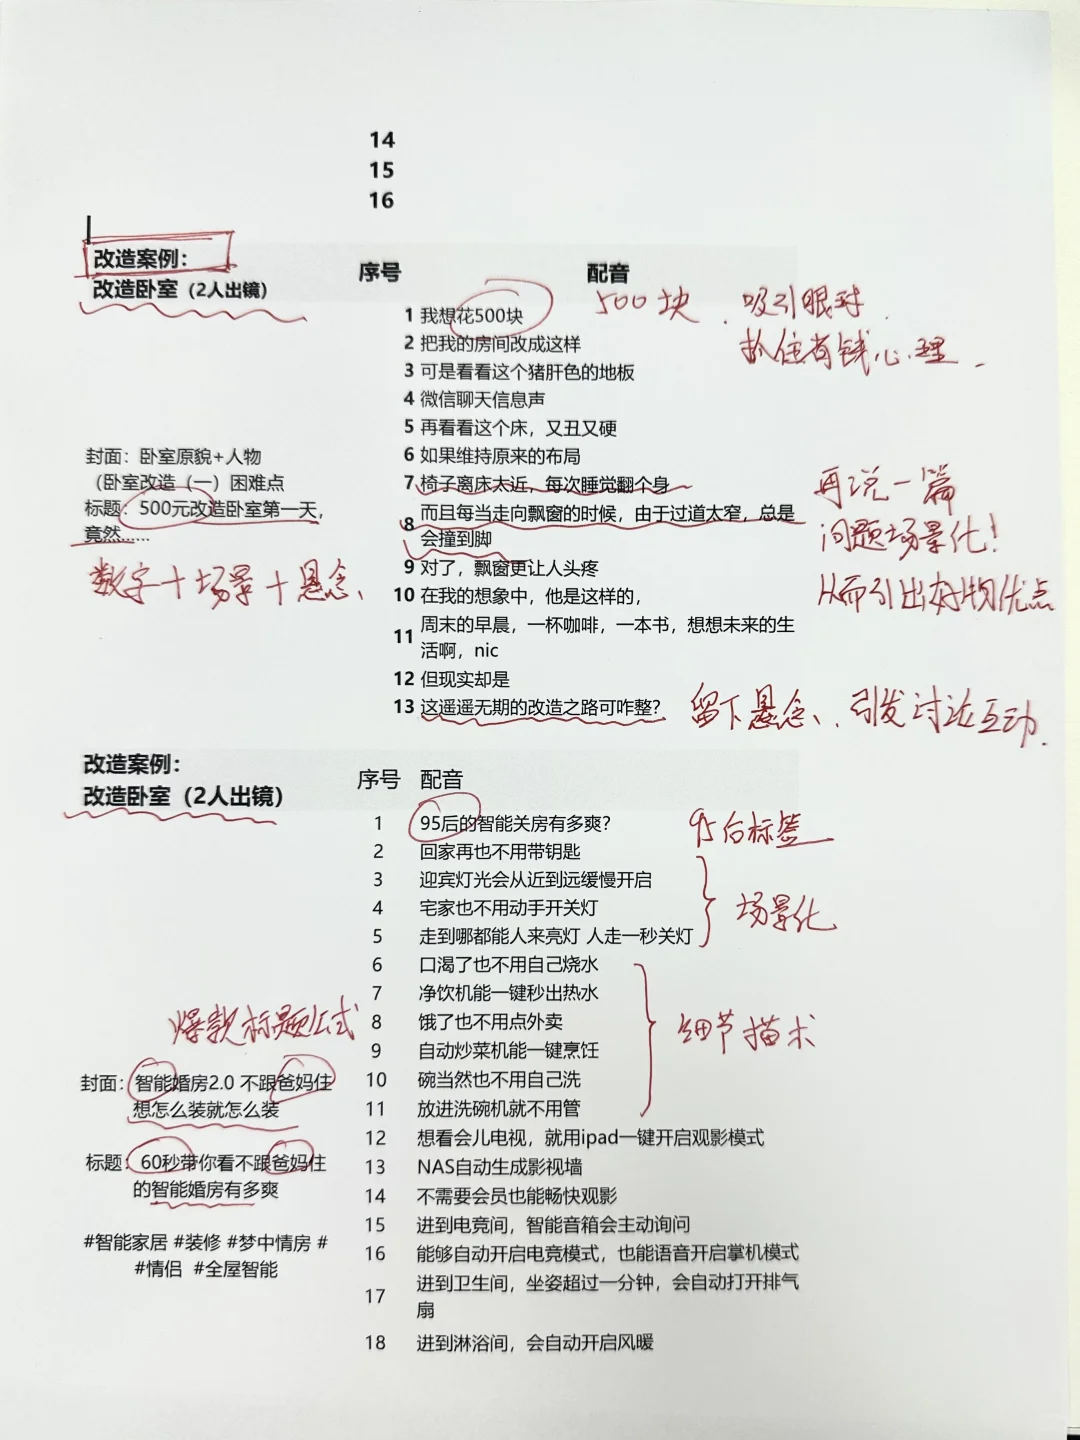 14
15
16
改造案例：
改造卧室（2人出镜）
序号 配音
1 我想花500块
500块 . 吸引眼球 .
抓住省钱心理 .
2 把我的房间改成这样
3 可是看看这个猪肝色的地板
4 微信聊天信息声
5 再看看这个床，又丑又硬
6 如果维持原来的布局
7 椅子离床太近，每次睡觉翻个身
8 而且每当走向飘窗的时候，由于过道太窄，总是
会撞到脚
9 对了，飘窗更让人头疼
10 在我的想象中，他是这样的，
11 周末的早晨，一杯咖啡，一本书，想想未来的生
活啊，nic
12 但现实却是
13 这遥遥无期的改造之路可咋整？
封面：卧室原貌+人物
（卧室改造（一）困难点
标题：500元改造卧室第一天，
竟然......
数字＋场景＋悬念、
再说一篇
问题场景化！
从而引出好物优点
留下悬念、. 引发讨论互动.
改造案例：
改造卧室（2人出镜）
序号 配音
1 95后的智能关房有多爽？
95后标签
2 回家再也不用带钥匙
3 迎宾灯光会从近到远缓慢开启
4 宅家也不用动手开关灯
5 走到哪都能人来亮灯 人走一秒关灯
场景化
6 口渴了也不用自己烧水
7 净饮机能一键秒出热水
8 饿了也不用点外卖
9 自动炒菜机能一键烹饪
10 碗当然也不用自己洗
11 放进洗碗机就不用管
细节描术
12 想看会儿电视，就用ipad一键开启观影模式
13 NAS自动生成影视墙
14 不需要会员也能畅快观影
15 进到电竞间，智能音箱会主动询问
16 能够自动开启电竞模式，也能语音开启掌机模式
17 进到卫生间，坐姿超过一分钟，会自动打开排气
扇
18 进到淋浴间，会自动开启风暖
爆款标题公式
封面：智能婚房2.0 不跟爸妈住
想怎么装就怎么装
标题：60秒带你看不跟爸妈住
的智能婚房有多爽
#智能家居 #装修 #梦中情房 #
#情侣 #全屋智能